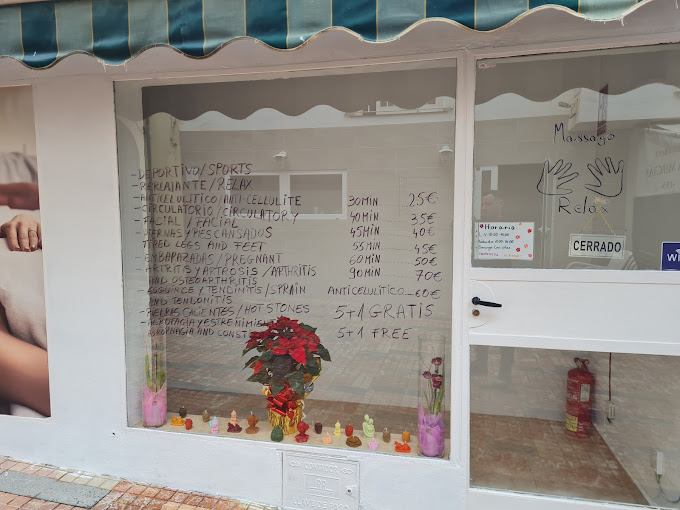 -DEPORTIVO/SPORTS
-RELAJANTE/RELAX
-ANTICELULITICO/ANTI-CELLULITE
-CIRCULATORIO/CIRCULATORY
-FACIAL/FACIAL
-PIERNAS Y PIES CANSADOS
TIRED LEGS AND FEET
-EMBARAZADAS/PREGNANT
-ARTRITIS Y ARTROSIS/ARTHRITIS
AND OSTEOARTHRITIS
-ESGUINCE Y TENDINITIS/SPRAIN
AND TENDONITIS
-PIEDRAS CALIENTES/HOT STONES
-AEROFAGIA Y ESTREÑIMIENTO
AEROPHAGIA AND CONST
30MIN 25€
40MIN 35€
45MIN 40€
55MIN 45€
60MIN 50€
90MIN 70€
ANTICELULÍTICO-60€
5+1 GRATIS
5+1 FREE
Massage
Relax
Horario
CERRADO